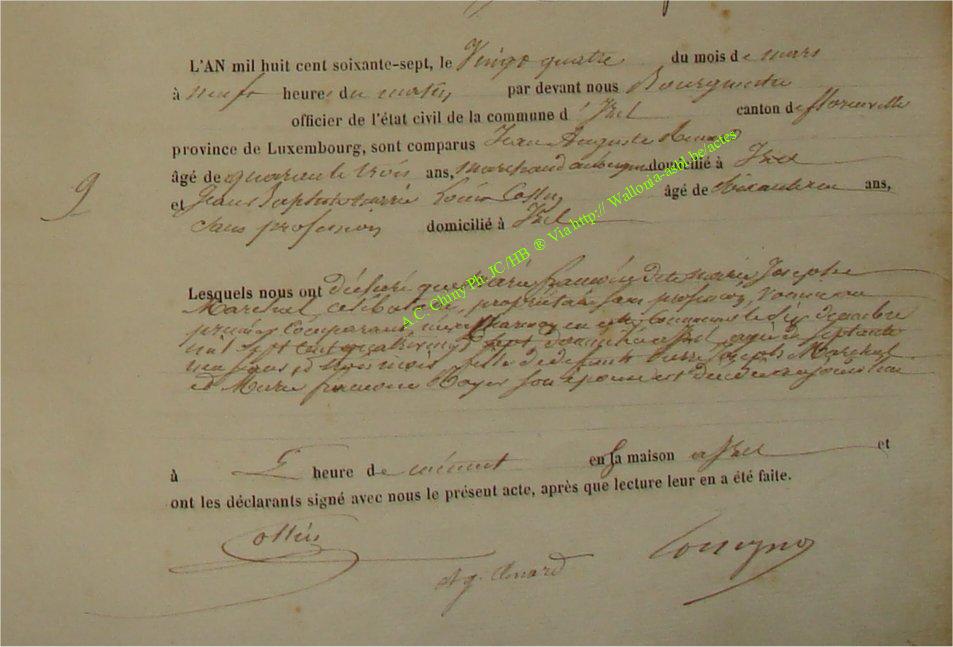 L'AN mil huit cent soixante-sept, le Vingt quatre du mois de mars
à neuf heures du matin par devant nous Bourgmestre
officier de l'état civil de la commune d'Izel canton de florenville
province de Luxembourg, sont comparus Jean Auguste
âgé de quarante trois ans, marchand domicilié à Izel
et Jean Baptiste Louis âgé de ans,
sans profession domicilié à Izel
9
Lesquels nous ont déclaré que françoise dite marie Josephe
Marchal célibataire, propriétaire sans profession, du
premier comparant, en cette commune le six décembre
mil sept cent quatre vingt sept domiciliée à Izel, agée de septante
neuf ans et trois mois, fille de défunts Marchal
et Marie françoise son épouse est décédée
à L heure de minuit en sa maison à Izel et
ont les déclarants signé avec nous le présent acte, après que lecture leur en a été faite.
A.C. Chiny Ph. JC/HB ® Via http:// Wallonia-asbl.be/actes